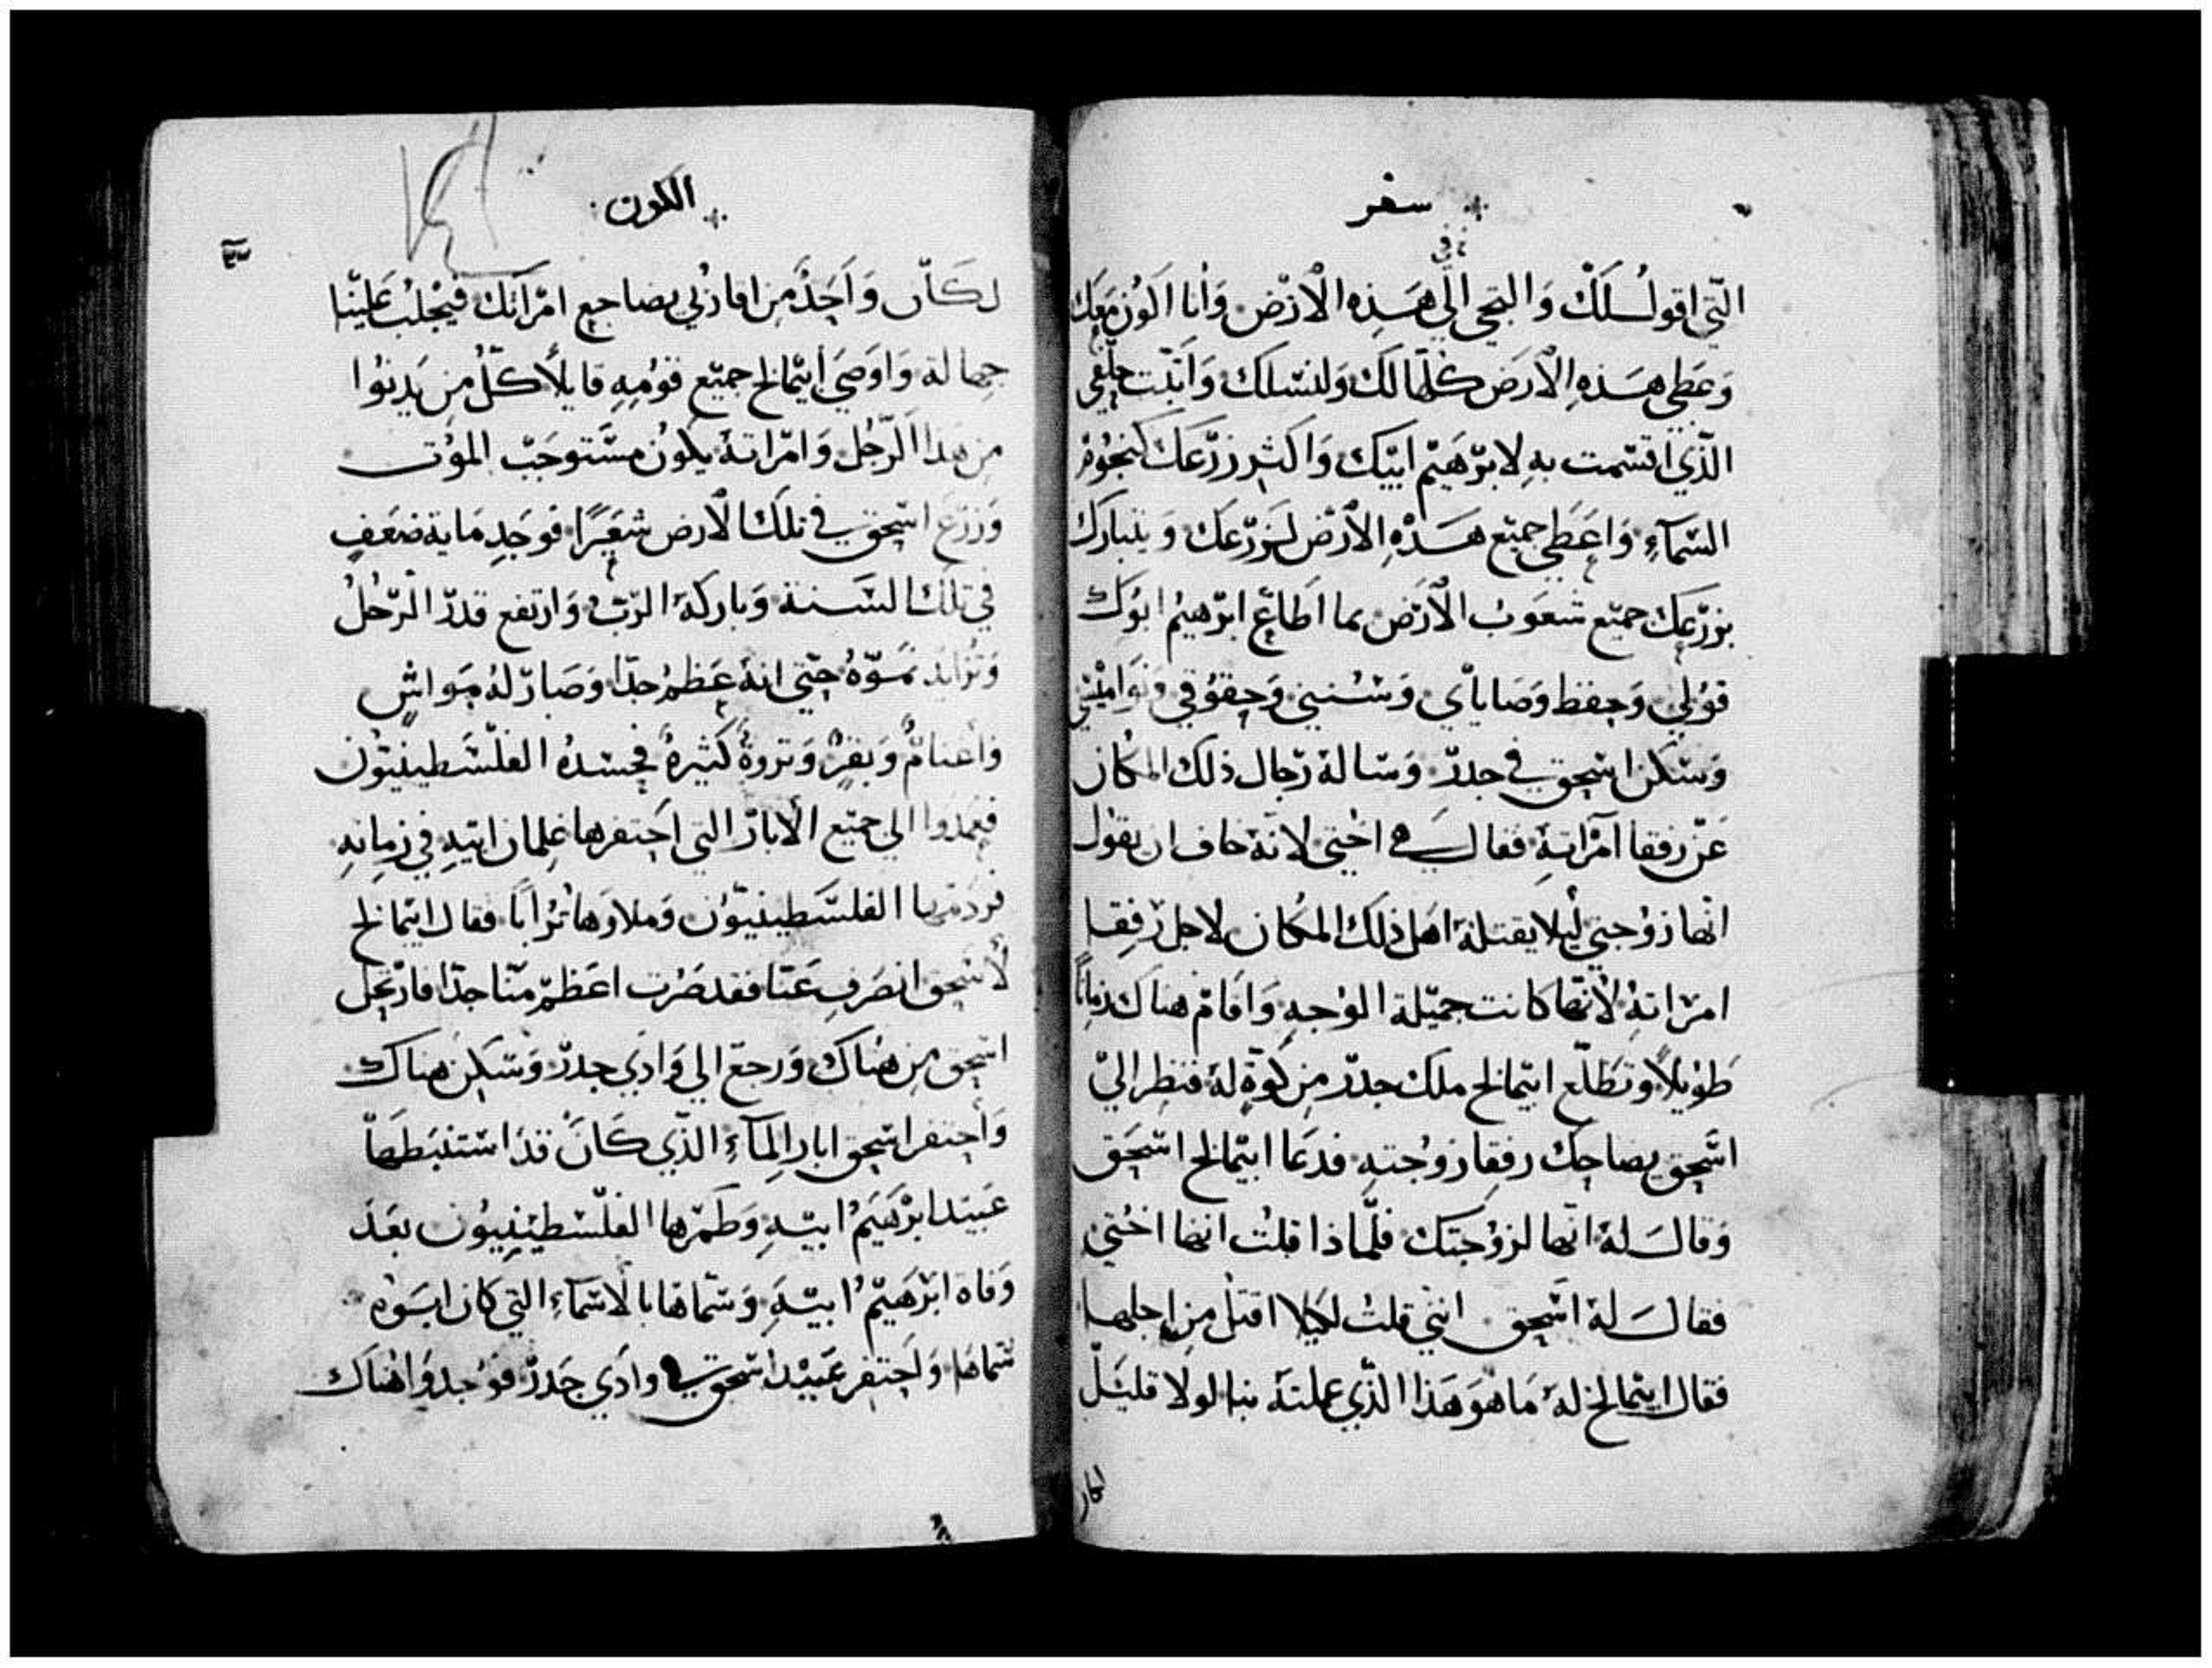 سفر
التي اقول لك والتجي الي هذه الارض وانا اكون معك
وعطي هذه الارض كلها لك ولنسلك واثبت حلفي
الذي اقسمت به لابرهيم ابيك واكثر زرعك كنجوم
السمآء واعطي جميع هذه الارض لزرعك ويتبارك
بزرعك جميع شعوب الارض بما اطاع ابرهيم ابوك
قولي وحفظ وصاياي وسنني وحقوقي ونواميسي
وسكن اسحق في جدر وساله رجال ذلك المكان
عن رفقا امراته فقال هي اختي لانه خاف ان يقول
انها زوجتي ليلا يقتله اهل ذلك المكان لاجل رفقا
امراته لانها كانت جميلة الوجه واقام هناك زمانا
طويلا وتطلع ابيمالخ ملك جدر من كوة له فنظر الي
اسحق يضاحك رفقا زوجته فدعا ابيمالخ اسحق
وقال له انها لزوجتك فلماذا قلت انها اختي
فقال له اسحق انني قلت لكيلا اقتل من اجلها
فقال ابيمالخ له ما هو هذا الذي عملته بنا لولا قليل
لكان
الكون
٣٣
لكان واحد من اقاربي يضاجع امراتك فيجلب علينا
جهالة واوصي ابيمالخ جميع قومه قايلا كل من يدنوا
من هذا الرجل وامراته يكون مستوجب الموت
وزرع اسحق في تلك الارض شعيرا فوجد ماية ضعف
في تلك السنة وباركه الرب وارتفع قدر الرجل
وتزايد نموه حتي انه عظم جدا وصار له مواش
واغنام وبقر وثروة كثيرة فحسده الفلسطينيون
فعمدوا الي جميع الابار التي احتفرها غلمان ابيه في زمانه
فردمها الفلسطينيون وملاوها ترابا فقال ابيمالخ
لاسحق انصرف عنا فقد صرت اعظم منا جدا فارتحل
اسحق من هناك ورجع الي وادي جدر وسكن هناك
واحتفر اسحق ابار المآء الذي كان قد استنبطها
عبيد ابرهيم ابيه وطمرها الفلسطينيون بعد
وفاة ابرهيم ابيه وسماها بالاسمآء التي كان ابوه
سماها واحتفر عبيد اسحق في وادي جدر فوجدوا هناك